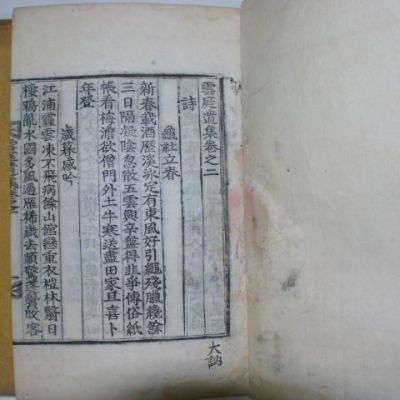 雲庭遺集卷之二
詩
龜社立春
新春載酒歷淡氷定有東風好引繩殘臘纔餘
三日隔凝陰忽散五雲興辛盤得韭爭傳俗紙
帳看梅澹欲僧門外土牛寒送盡田家且喜卜
年登
歲暮感吟
江浦霾雲凍不飛病餘山館戀重衣林翳日
棲鴉亂水國多風過雁稀歲去頭鬢客
大訥